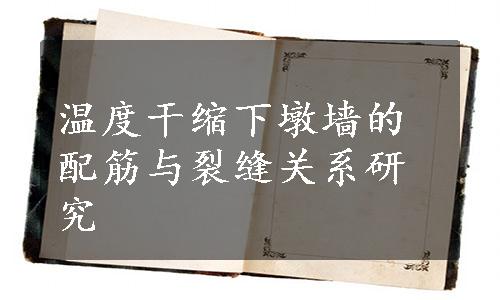 温度干缩下墩墙的
配筋与裂缝关系研
究